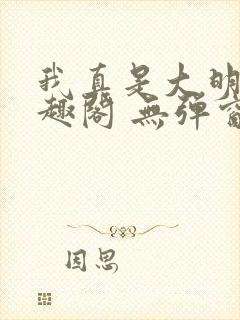 我真是大明
趣閣 無彈窗
因思